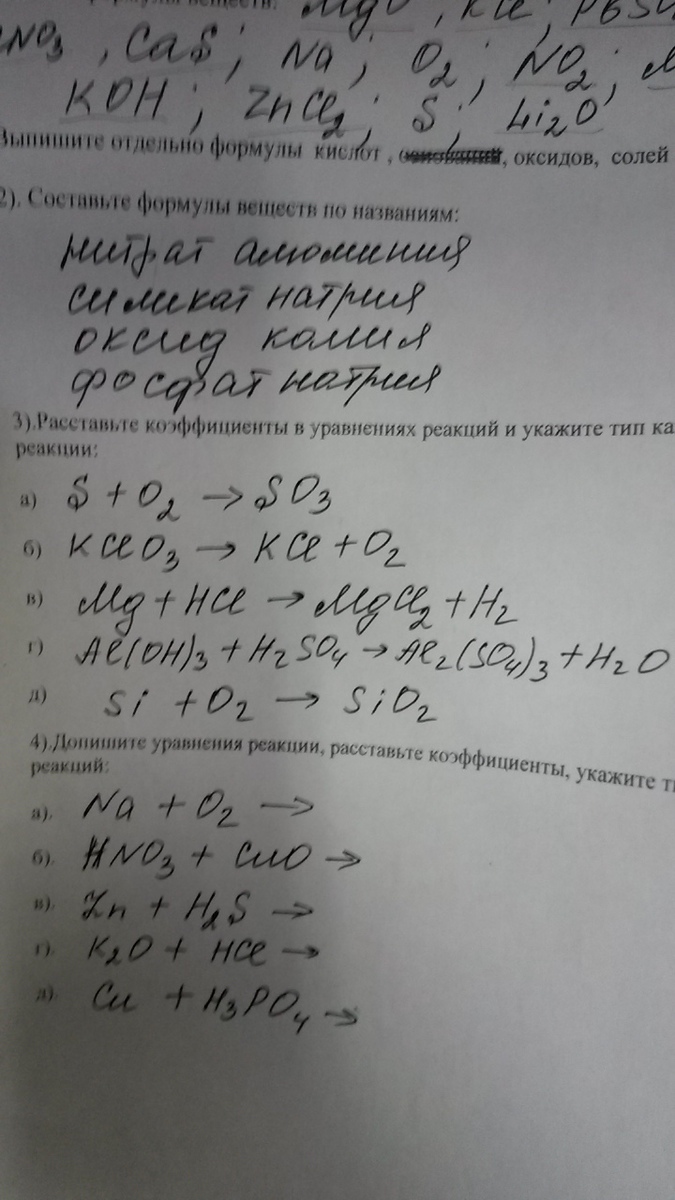 формулы веществ: MgO, KCl; PbSO
NO3, CaS; Na; O2; NO2;
KOH; ZnCl2; S; Li2O
Выпишите отдельно формулы кислот, оксидов, солей
2). Составьте формулы веществ по названиям:
нитрат алюминия
силикат натрия
оксид калия
фосфат натрия
3).Расставьте коэффициенты в уравнениях реакций и укажите тип ка
реакции:
а) S + O2 → SO3
б) KClO3 → KCl + O2
в) Mg + HCl → MgCl2 + H2
г) Al(OH)3 + H2SO4 → Al2(SO4)3 + H2O
д) Si + O2 → SiO2
4).Допишите уравнения реакции, расставьте коэффициенты, укажите ти
реакций:
а). Na + O2 →
б). HNO3 + CuO →
в). Zn + H2S →
г). K2O + HCl →
д). Cu + H3PO4 →